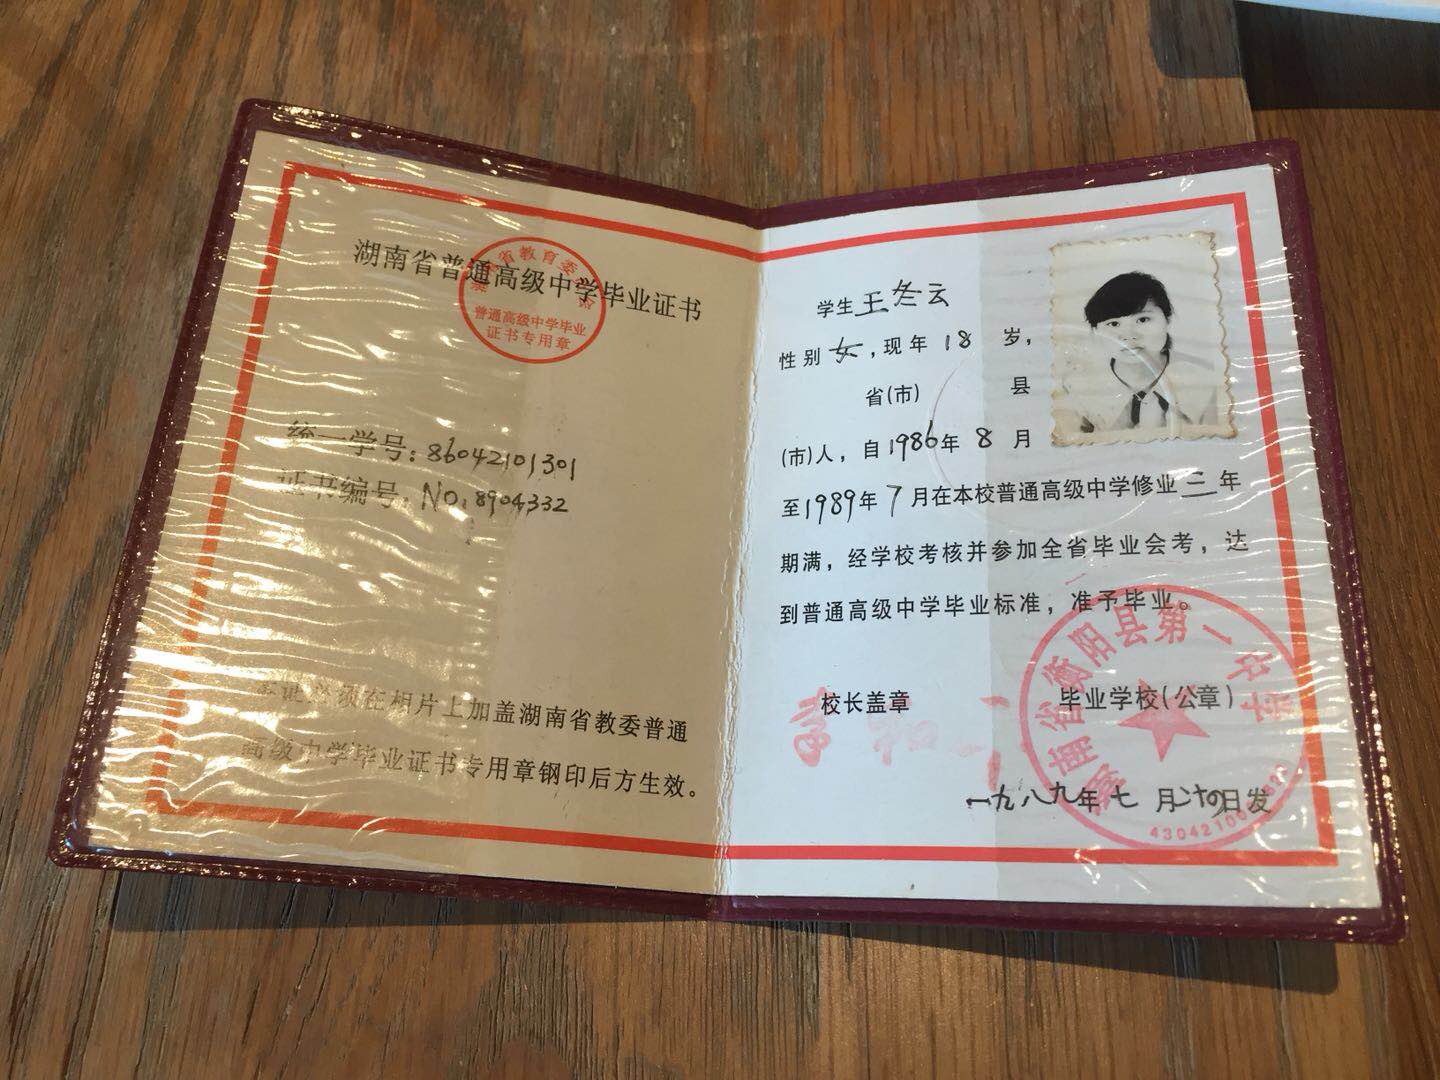 湖南省普通高级中学毕业证书
湖南省教育委员会
普通高级中学毕业
证书专用章
统一学号：86042101301
证书编号：NO：8904332
本证必须在相片上加盖湖南省教委普通
高级中学毕业证书专用章钢印后方生效。
学生王冬云
性别女，现年18岁，
省(市) 县
(市)人，自1986年8月
至1989年7月在本校普通高级中学修业三年
期满，经学校考核并参加全省毕业会考，达
到普通高级中学毕业标准，准予毕业。
校长盖章 毕业学校(公章)
湖南省衡阳县第一中学
一九八九年七月二十四日发